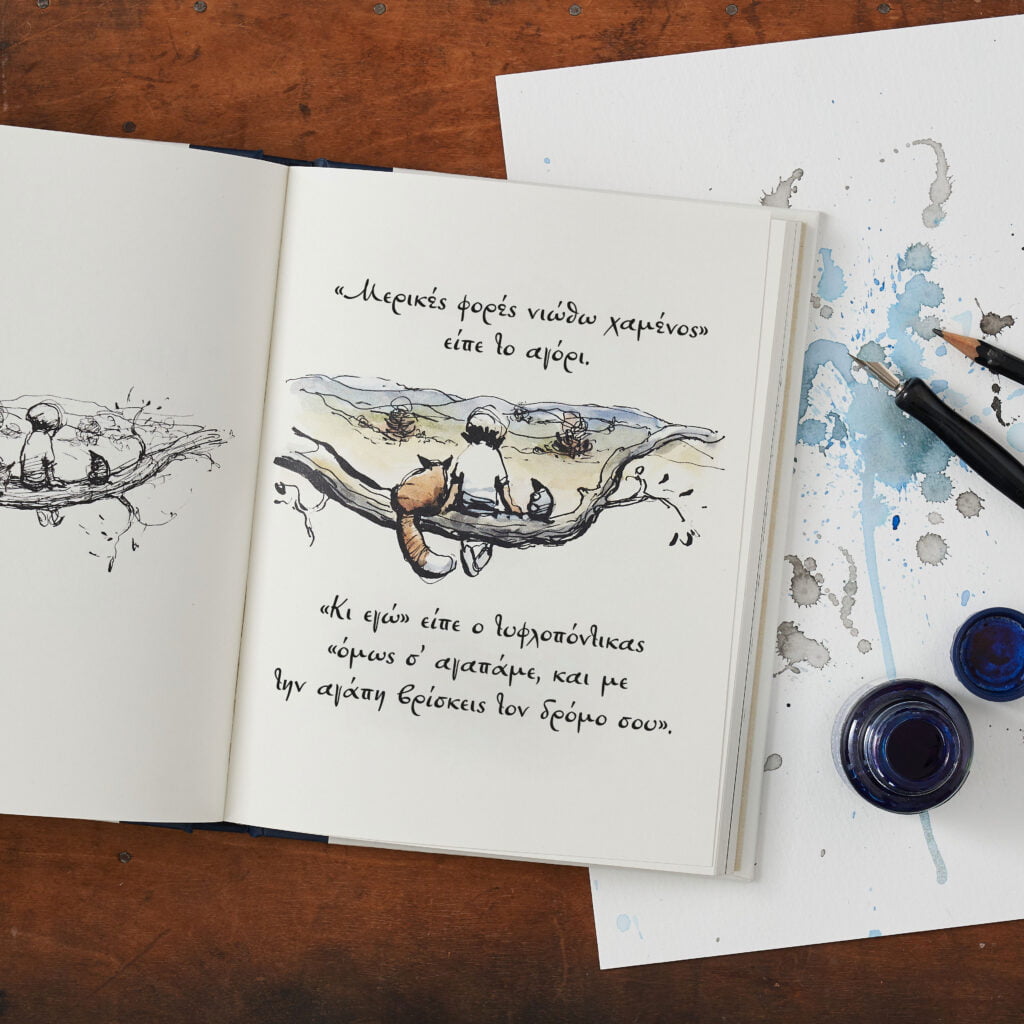 «Μερικές φορές νιώθω χαμένος»
είπε το αγόρι.
«Κι εγώ» είπε ο τυφλοπόντικας
«όμως σ' αγαπάμε, και με
την αγάπη βρίσκεις τον δρόμο σου».